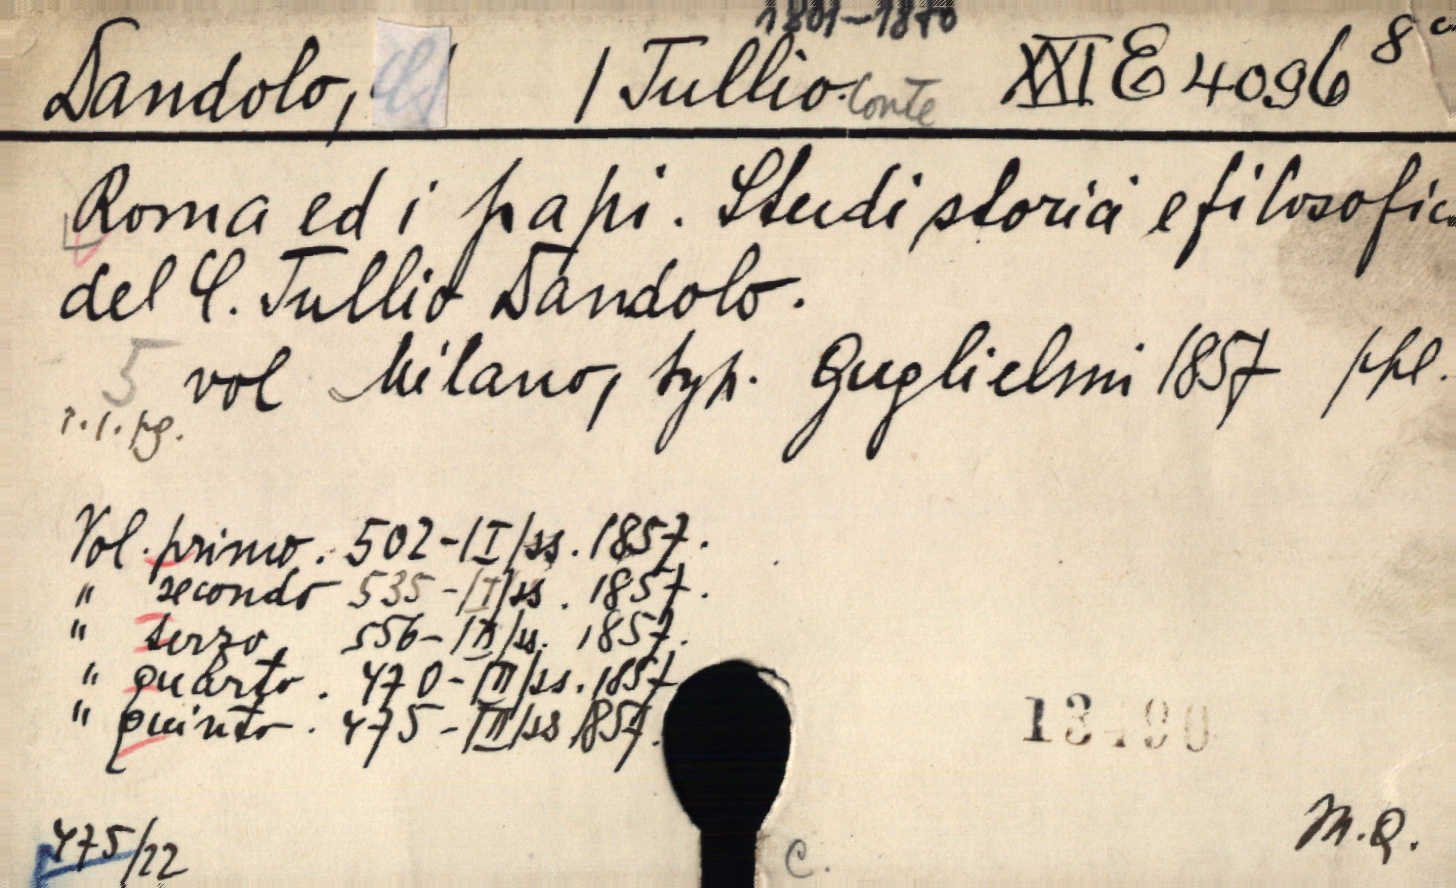 1801-1870
Dandolo, / Tullio. Conte XXI E 4096 8°
Roma ed i papi. Studi storici e filosofic
del C. Tullio Dandolo.
5 vol Milano, typ. Guglielmi 1857 ppl.
Vol. primo. 502-/I/ss. 1857.
" secondo 535-/I/ss. 1857.
" terzo 556-/II/ss. 1857.
" quarto. 470-/III/ss. 1857
" quinto. 475-/III/ss 1857.
13490
475/22
M.Q.
C.